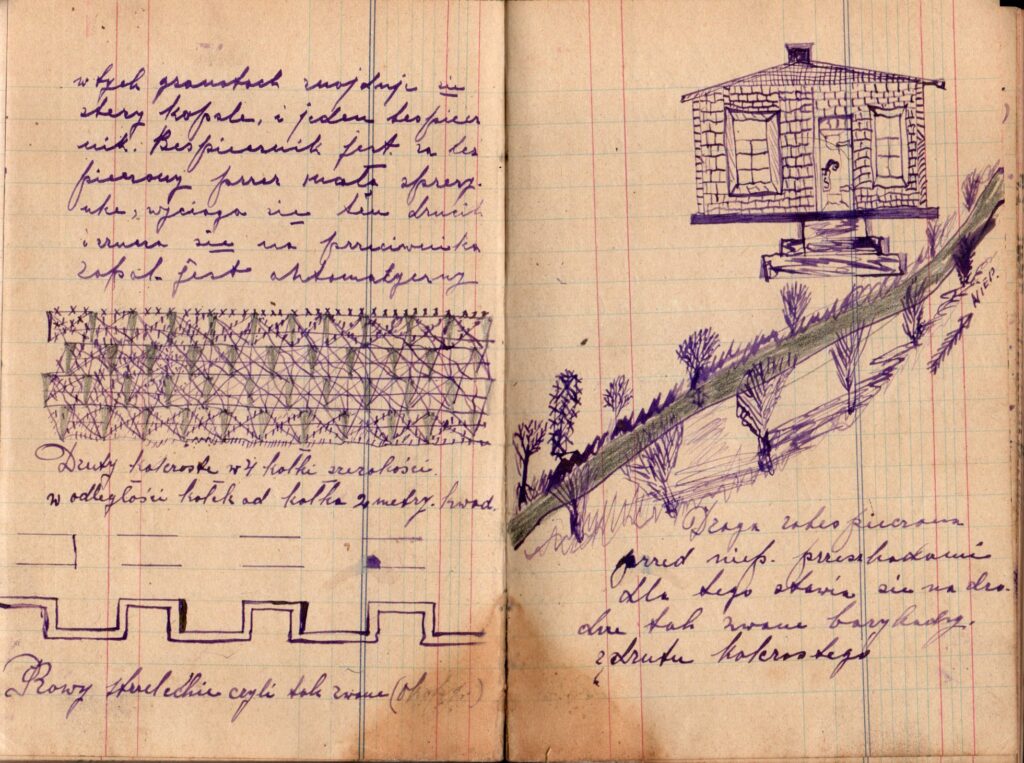 w tych granatach znajduje się
cztery kopale, i jeden bespiecz
nik. Bespiecznik jest za bes
pieczony przez małą spręży.
nke, wyciąga się ten drucik
i rzuca się na przeciwnika
zapal. jest ahtomatyczny
Druty kolcroste w 4 kołki szerokości.
w odległości kołek od kołka 2 metry. kwad.
Rowy strzeleckie czyli tak zwane
NIEP.
Droga zabespieczona
przed niep. przeszkodami
dla tego stawia się na dro-
dze tak zwane barykady.
z drutu kolcrostego